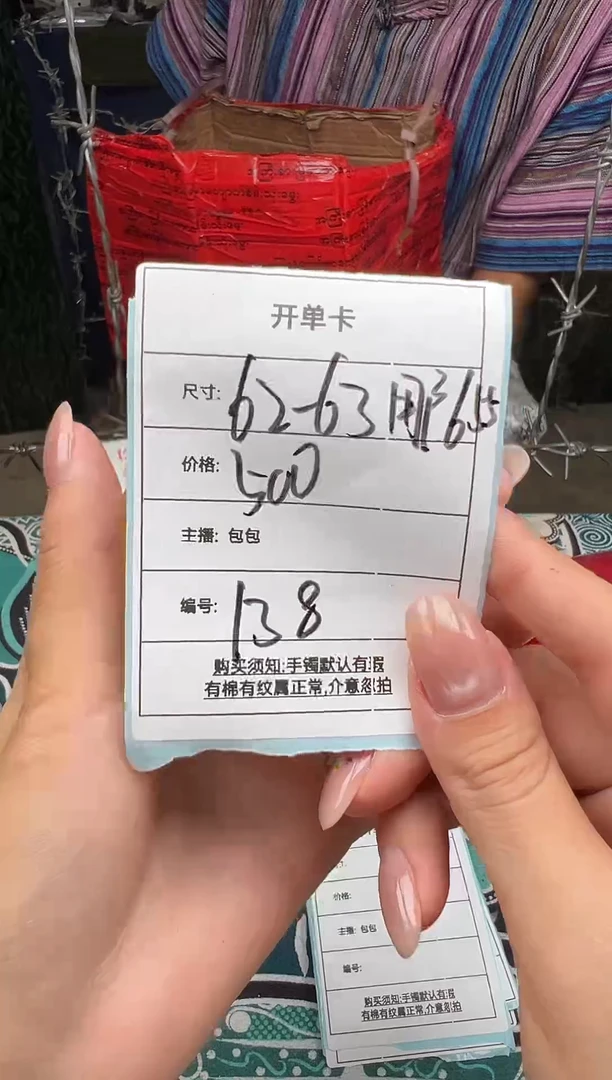 开单卡
尺寸: 62-63
价格: 500
主播: 包包
编号: 138
购买须知:手镯默认有瑕
有棉有纹属正常,介意忽拍
价格:
主播: 包包
编号:
购买须知:手镯默认有瑕
有棉有纹属正常,介意忽拍